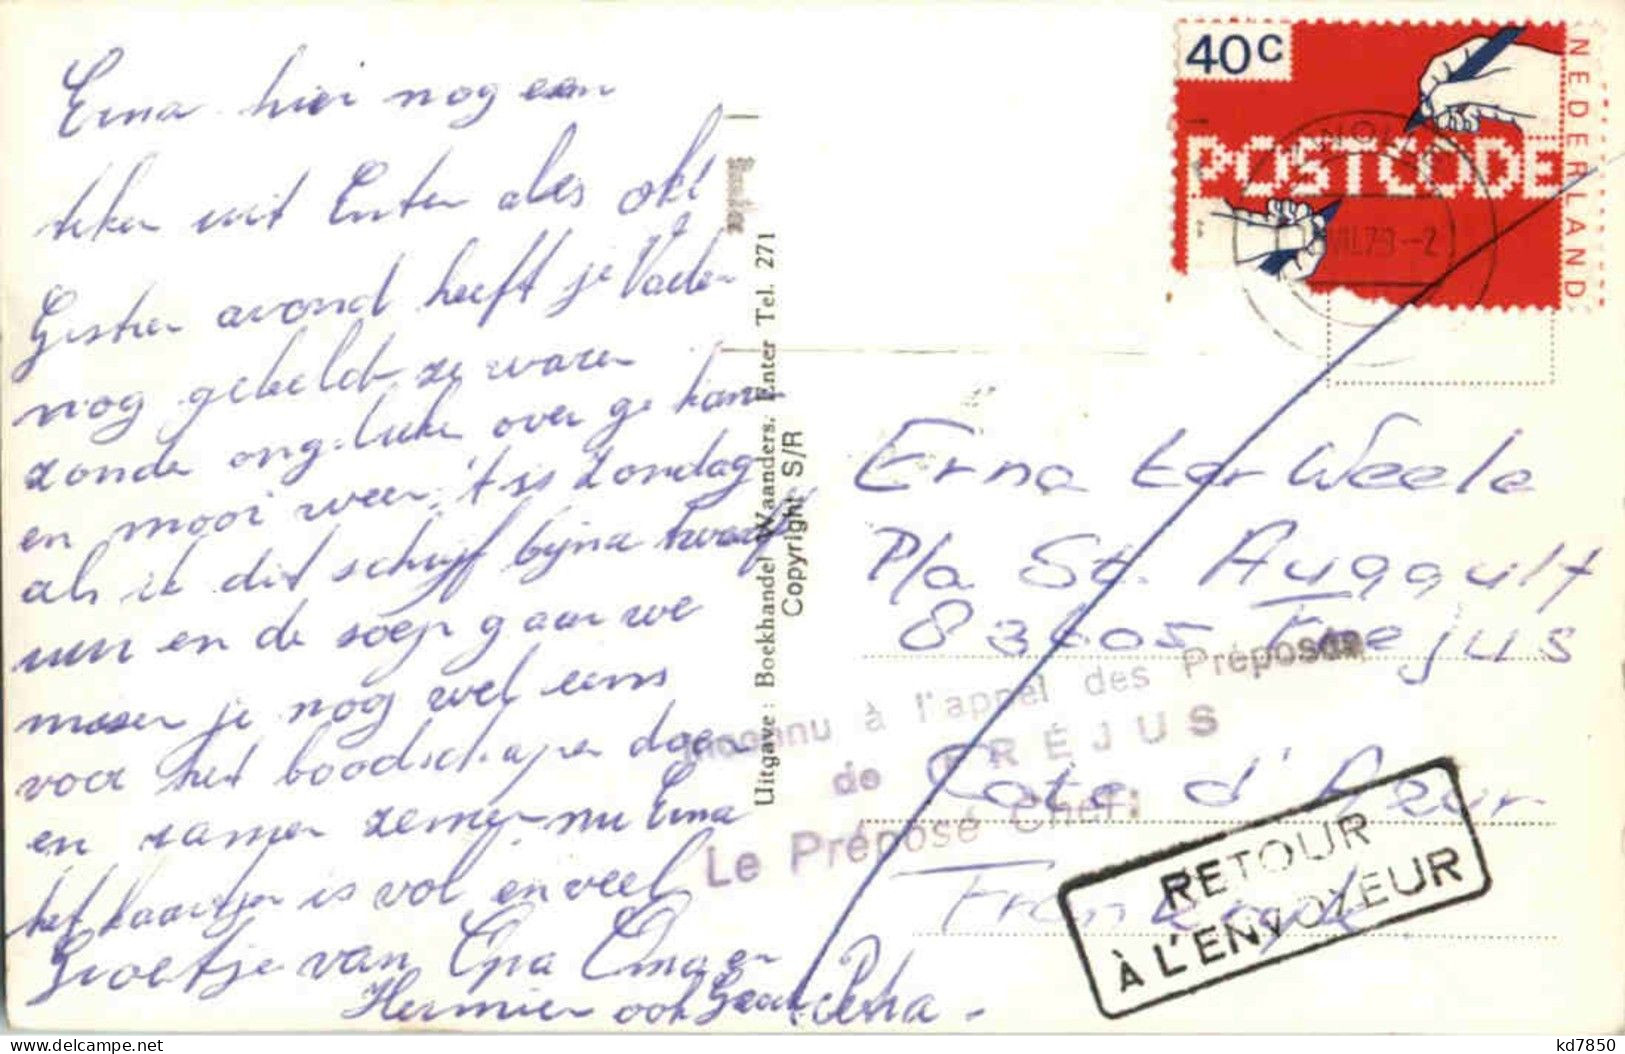 Erna hier nog een
teken uit Enter alles oké
Gisteren avond heeft je Vader
nog gebeld ze waren
zonder ongelukken over ge komen
en mooi weer, 't is Zondag
als ik dit schrijf bijna twaalf
uur en de soep gaar we
je nog wel eens
voor het boodschapen doen
en samen nu Erna
het kaartje is vol en veel
Groetje van Opa Oma en
Hermien ook Petra.
Uitgave: Boekhandel Waanders, Enter Tel. 271
Copyright S/R
40c
POSTCODE
NEDERLAND
VII.79-2
Erna ter Weele
P/a St. Auggulf
83605 Frejus
Cote d'Azur
Inconnu à l'appel des Préposés
de FRÉJUS
Le Préposé Chef:
RETOUR
À L'ENVOYEUR
kd7850